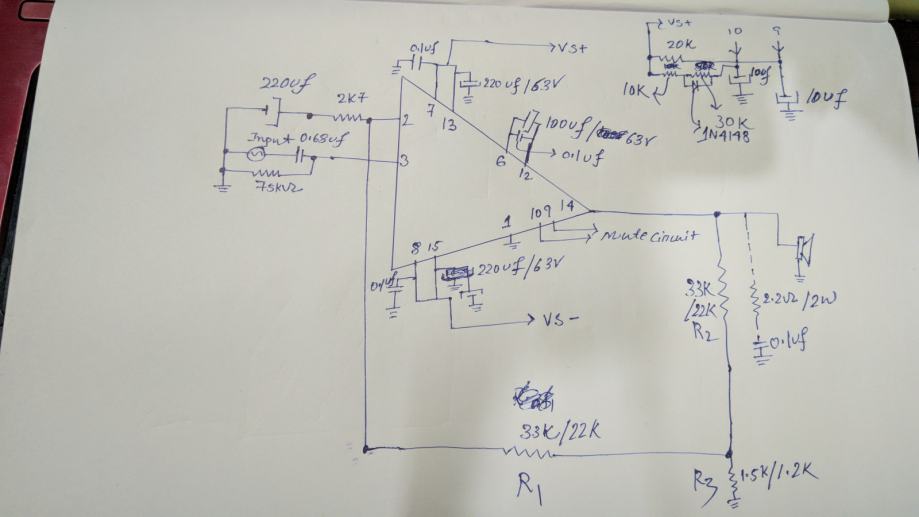 VS+
10 9
20K
0.1uf
VS+
10uf
220uf/63V
10K
10uf
220uf
30K
2K7
1N4148
7
13
100uf/63V
2
6
0.1uf
Input 0.68uf
3
12
75kΩ
1 10 9 14
Mute Circuit
8 15
0.1uf
220uf/63V
33K
/22K
R2
2.2Ω/2W
VS-
0.1uf
33K/22K
R1
R3
1.5K/1.2K